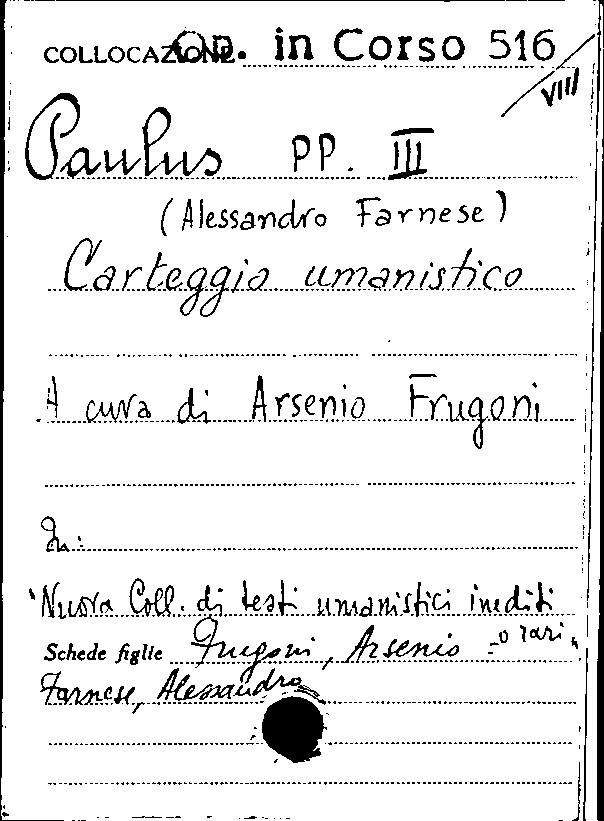 COLLOCAZIONE Op. in Corso 516
VIII
Paulus PP. III
(Alessandro Farnese)
Carteggio umanistico
A cura di Arsenio Frugoni
In:
"Nuova Coll. di testi umanistici inediti
o rari"
Schede figlie Frugoni, Arsenio
Farnese, Alessandro